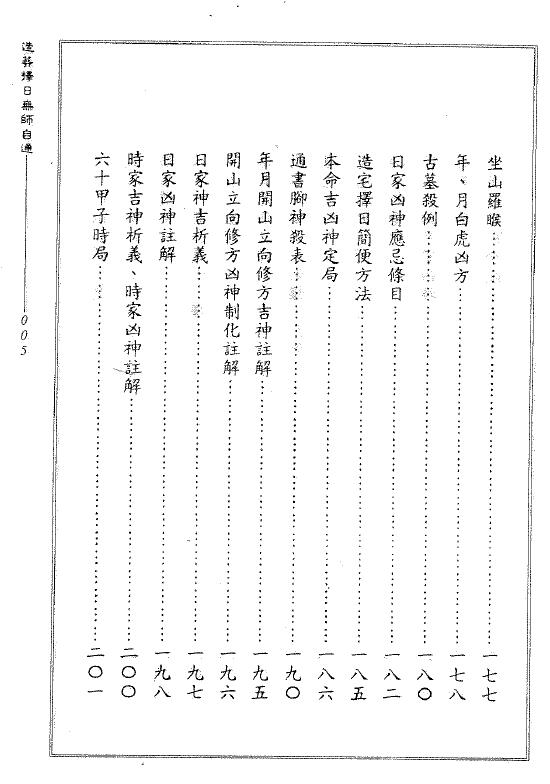 坐山羅睺……一七七
年、月白虎凶方……一七八
古墓殺例……一八〇
日家凶神應忌條目……一八二
造宅擇日簡便方法……一八五
本命吉凶神定局……一八六
通書腳神殺表……一九〇
年月開山立向修方吉神註解……一九五
開山立向修方凶神制化註解……一九六
日家神吉析義……一九七
日家凶神註解……一九八
時家吉神析義、時家凶神註解……二〇〇
六十甲子時局……二〇一
造葬擇日無師自通——005